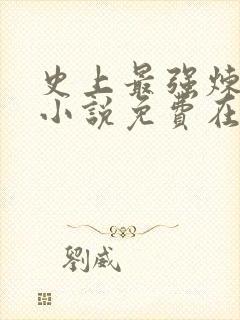 史上最强炼
小說免費在
劉威